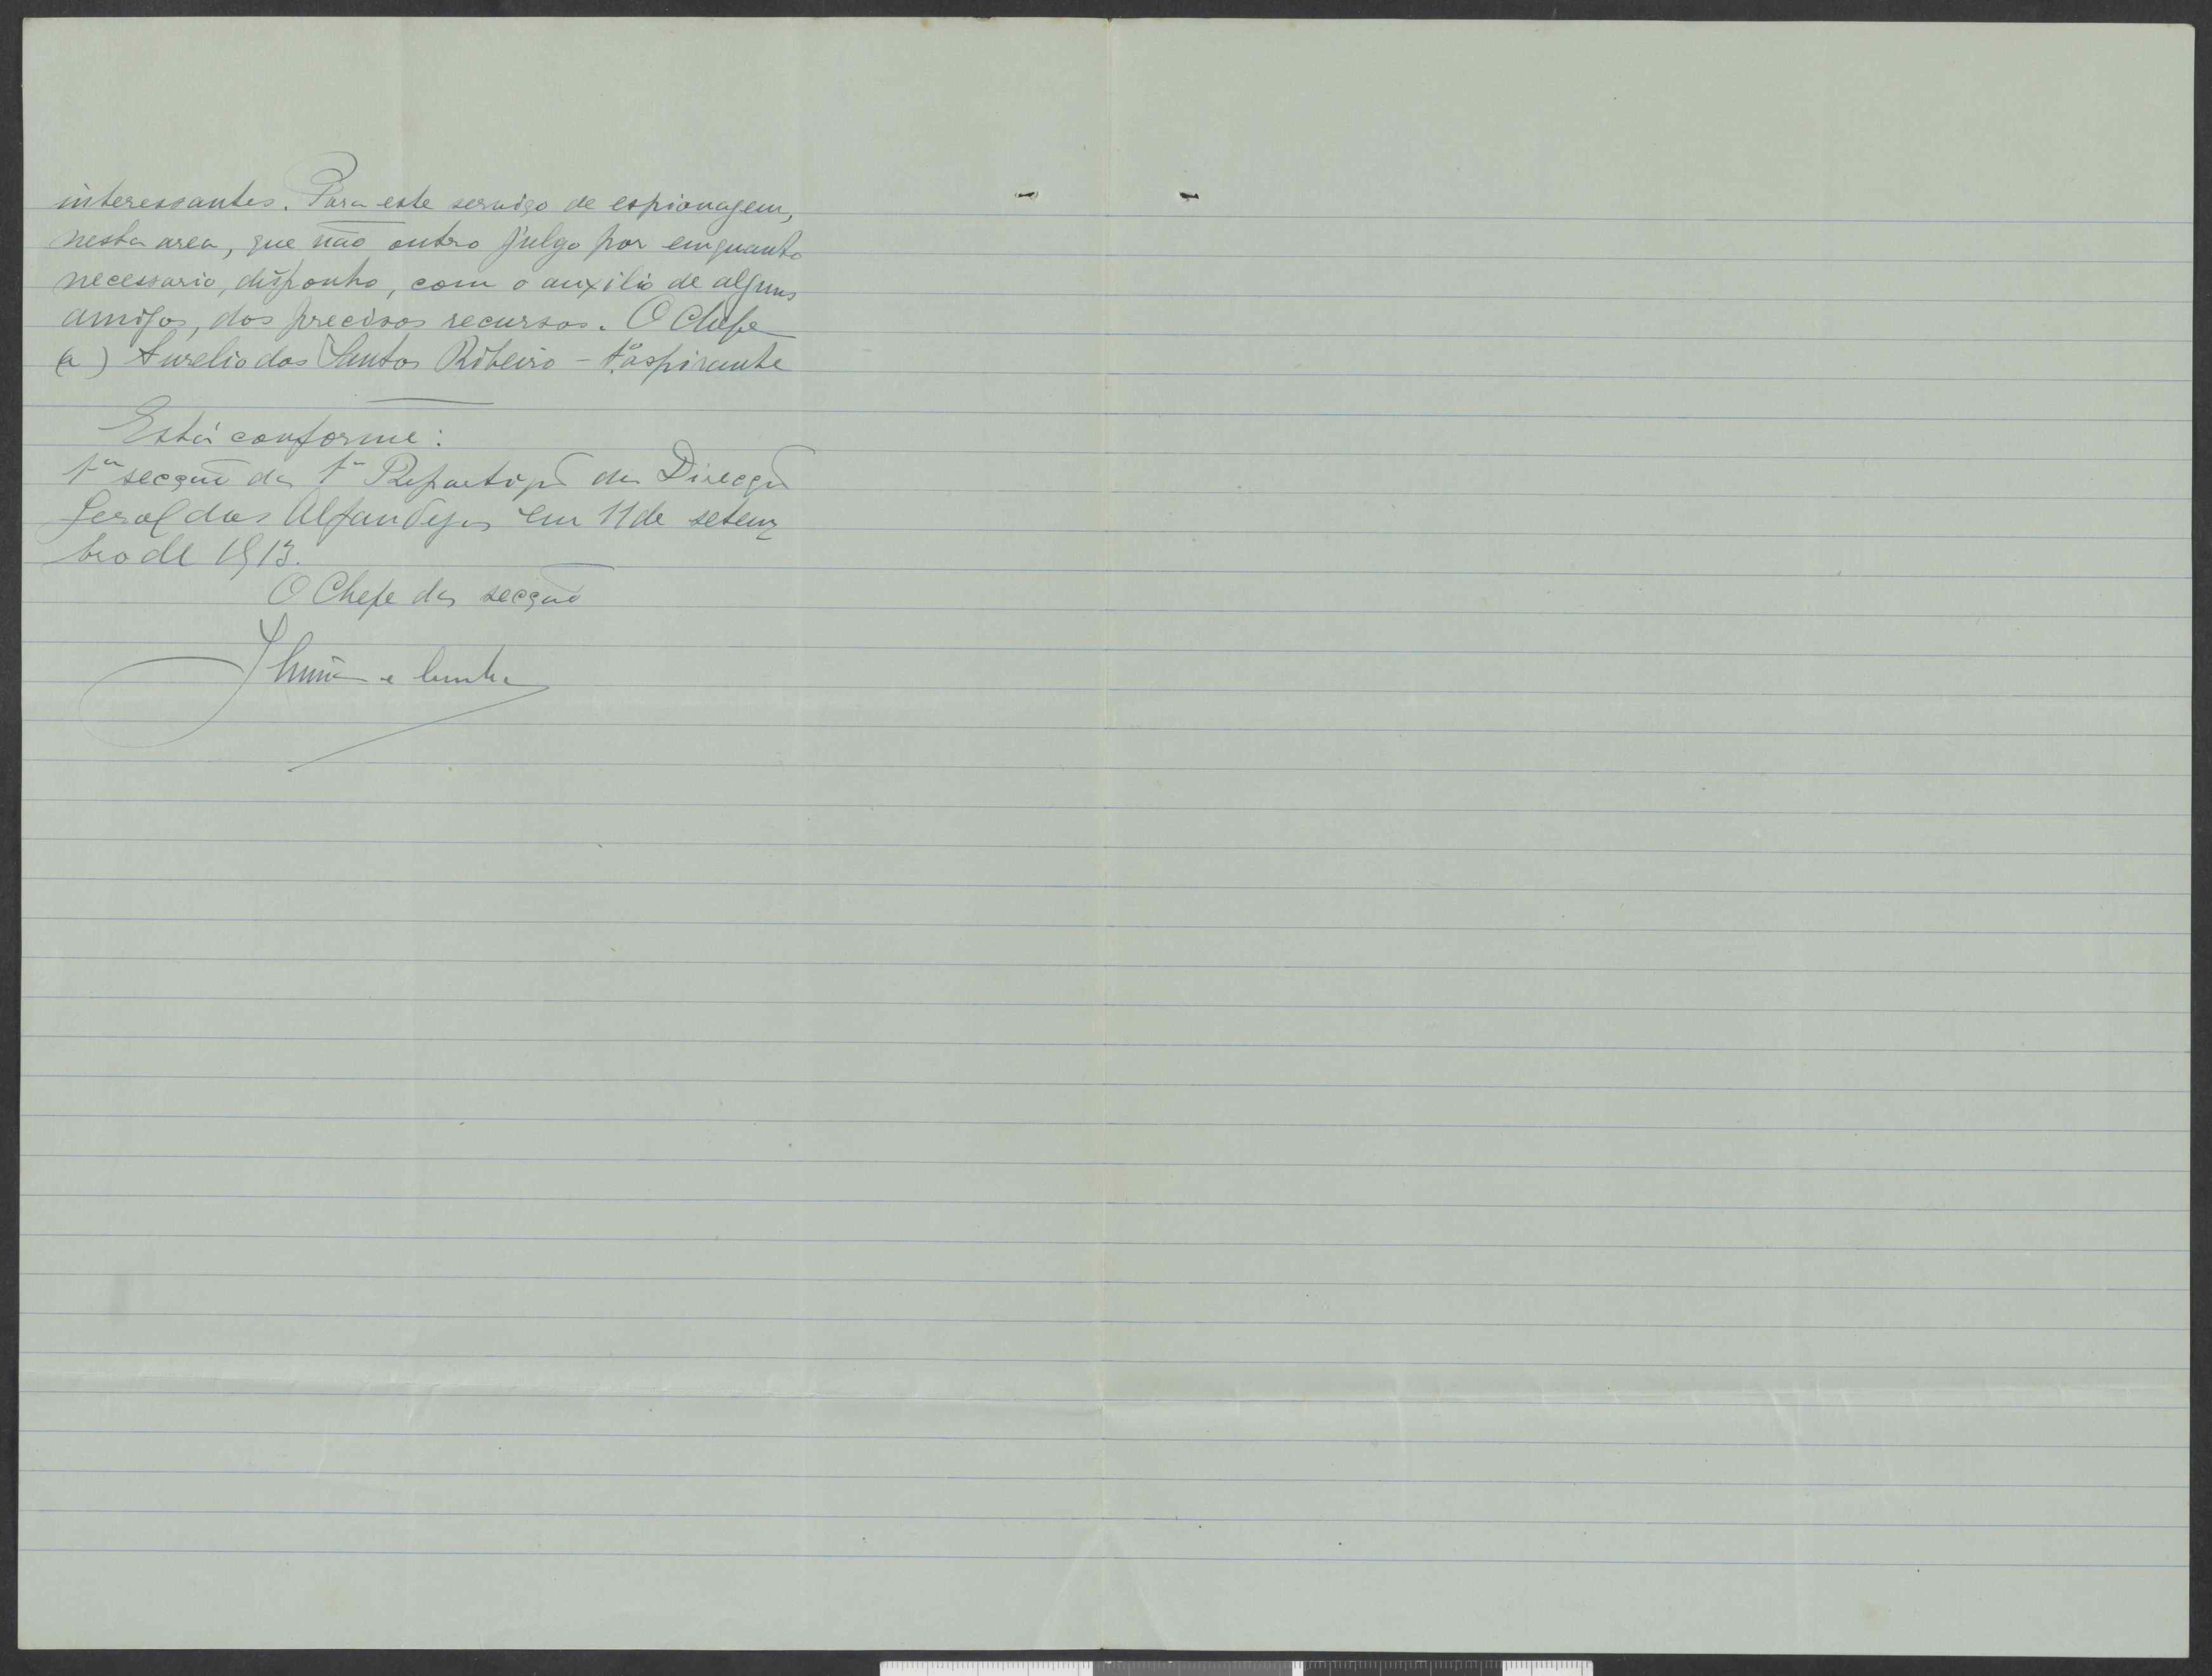 interessantes. Para este serviço de espionagem,
nesta area, que não outro julgo por emquanto
necessario, disponho, com o auxilio de alguns
amigos, dos precisos recursos. O Chefe
(a) Aurelio dos Santos Ribeiro - 1.º aspirante
Está conforme:
1ª secção da 1ª Repartição da Direcção
Geral das Alfandegas em 11 de setem
bro de 1913.
O Chefe da secção
e Cunha